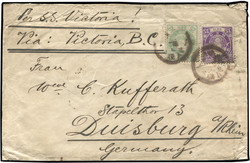 Per S.S. Victoria!
Via: Victoria, B.C.
Frau
Wed C. Kufferath
Stapeltor 13
Duisburg a/Rhein
Germany.